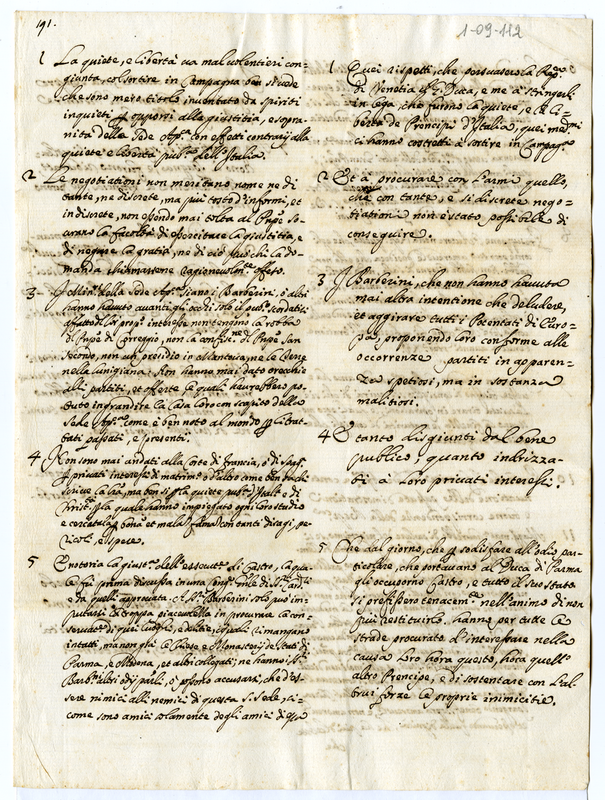 191.
1-09-112
1 La quiete, e libertà va mal volentieri con-
giunta, col sortire in Campagna ben si vede
che sono mero titolo inventato da spiriti
inquieti per opporsi alla giustitia, e sopra-
nità della Sede Apca. con effetti contrarij alla
quiete e libertà pubca. dell'Italia.
2 Le negotiationi non meritano nome ne di
tante, ne discrete, ma più tosto d'informi, et
indiscrete, non essendo mai tolta al Prnpe. so-
urano la facoltà di essercitare la giustitia, e
di negare la gratia, ne di ciò può chi la do-
manda chiamarsene ragioneuolmte. offeso.
3 I Minri. della Sede Apca. siano i Barberini, o altri
hanno hauuto auanti gli occhi solo il pubco.
interesse non tengono la robba
di Prnpe. di Correggio, non la di Prnpe. San
Secondo, non un presidio in Mantoua, ne le Terre
nella Lunigiana. Non hanno mai dato orecchie
alli partiti, et offerte le quali haurebbero po-
tuto ingrandire la Casa loro con scapito della
Sede Apca. come è ben noto al mondo per li trat-
tati passati, e presenti.
4 Non sono mai andati alla Corte di Francia, o di Spag.
per privati interessi di matrimo. o d'altro come ben
scriue la lra, ma ben sì per la quiete pubca. d'Ital. e di
Christ. per la quale hanno impiegato ogni loro studio
e cercatala per bona et mala fama con tanti disagi, pe-
ricoli, e spese.
5 È notoria la giusta. dell'essecutne. di Castro, la qua-
le fu prima discussa in una Congne.
e da quelli approuata. Li Sri. Barberini solo può im-
putarsi di troppa piaceuolezza in procurare la con-
seruatne. di quei luoghi, e delitie, i quali si mangano
intatti, ma non già le Chiese, e Monasterij de Stati di
Parma, e Modena, et altri collegati; ne hanno i Sri.
Barbni. altri odij parli., o possono accusarsi, che d'es-
sere nimici alli nemici di questa Sta. Sede, si-
come sono amici solamente degli amici di essa
1 Quei rispetti, che persuasero la Repca.
di Venetia, il G. Duca, e me a stringerci
in lega, che furono la quiete, e la li-
bertà de Prencipi d'Italia, quei medmi.
ci hanno costretti à sortire in Campagna
2 Et à procurare con l'armi quello,
che con tante, e sì discrete nego-
tiationi non è stato possibile di
conseguire.
3 I Barberini, che non hanno hauuta
mai altra intentione che deludere,
et aggirare tutti i Potentati di Euro-
pa, proponendo loro conforme alle
occorrenze partiti in apparen-
za spetiosi, ma in sostanza
malitiosi.
4 E tanto disgiunti dal bene
publico, quanto indrizza-
ti à loro priuati interessi.
5 Che dal giorno, che per sodisfare all'odio par-
ticolare, che portauano al Duca di Parma
gli occuporno Castro, e tutto il suo stato
si prefissero tenacemte. nell'animo di non
più restituirlo, hanno per tutte le
strade procurato d'interessare nella
causa loro hora questo, hora quell'
altro Prencipe, e di sostentare con l'al-
trui forze le proprie inimicitie.